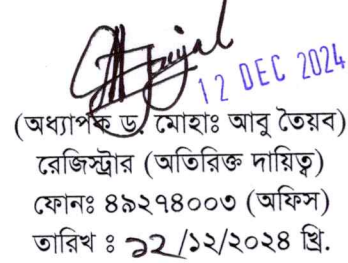 12 DEC 2024
(অধ্যাপক ড. মোহাঃ আবু তৈয়ব)
রেজিস্ট্রার (অতিরিক্ত দায়িত্ব)
ফোনঃ ৪৯২৭৪০০৩ (অফিস)
তারিখ : ১২/১২/২০২৪ খ্রি.